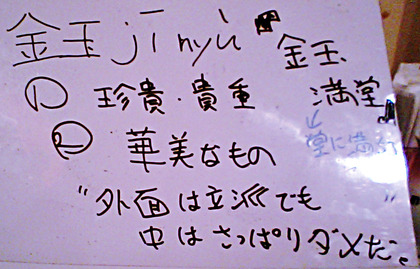 金玉 jīnyù 金玉
① 珍貴・貴重 満堂
堂に満
② 華美なもの
"外面は立派でも
中はさっぱりダメだ。"